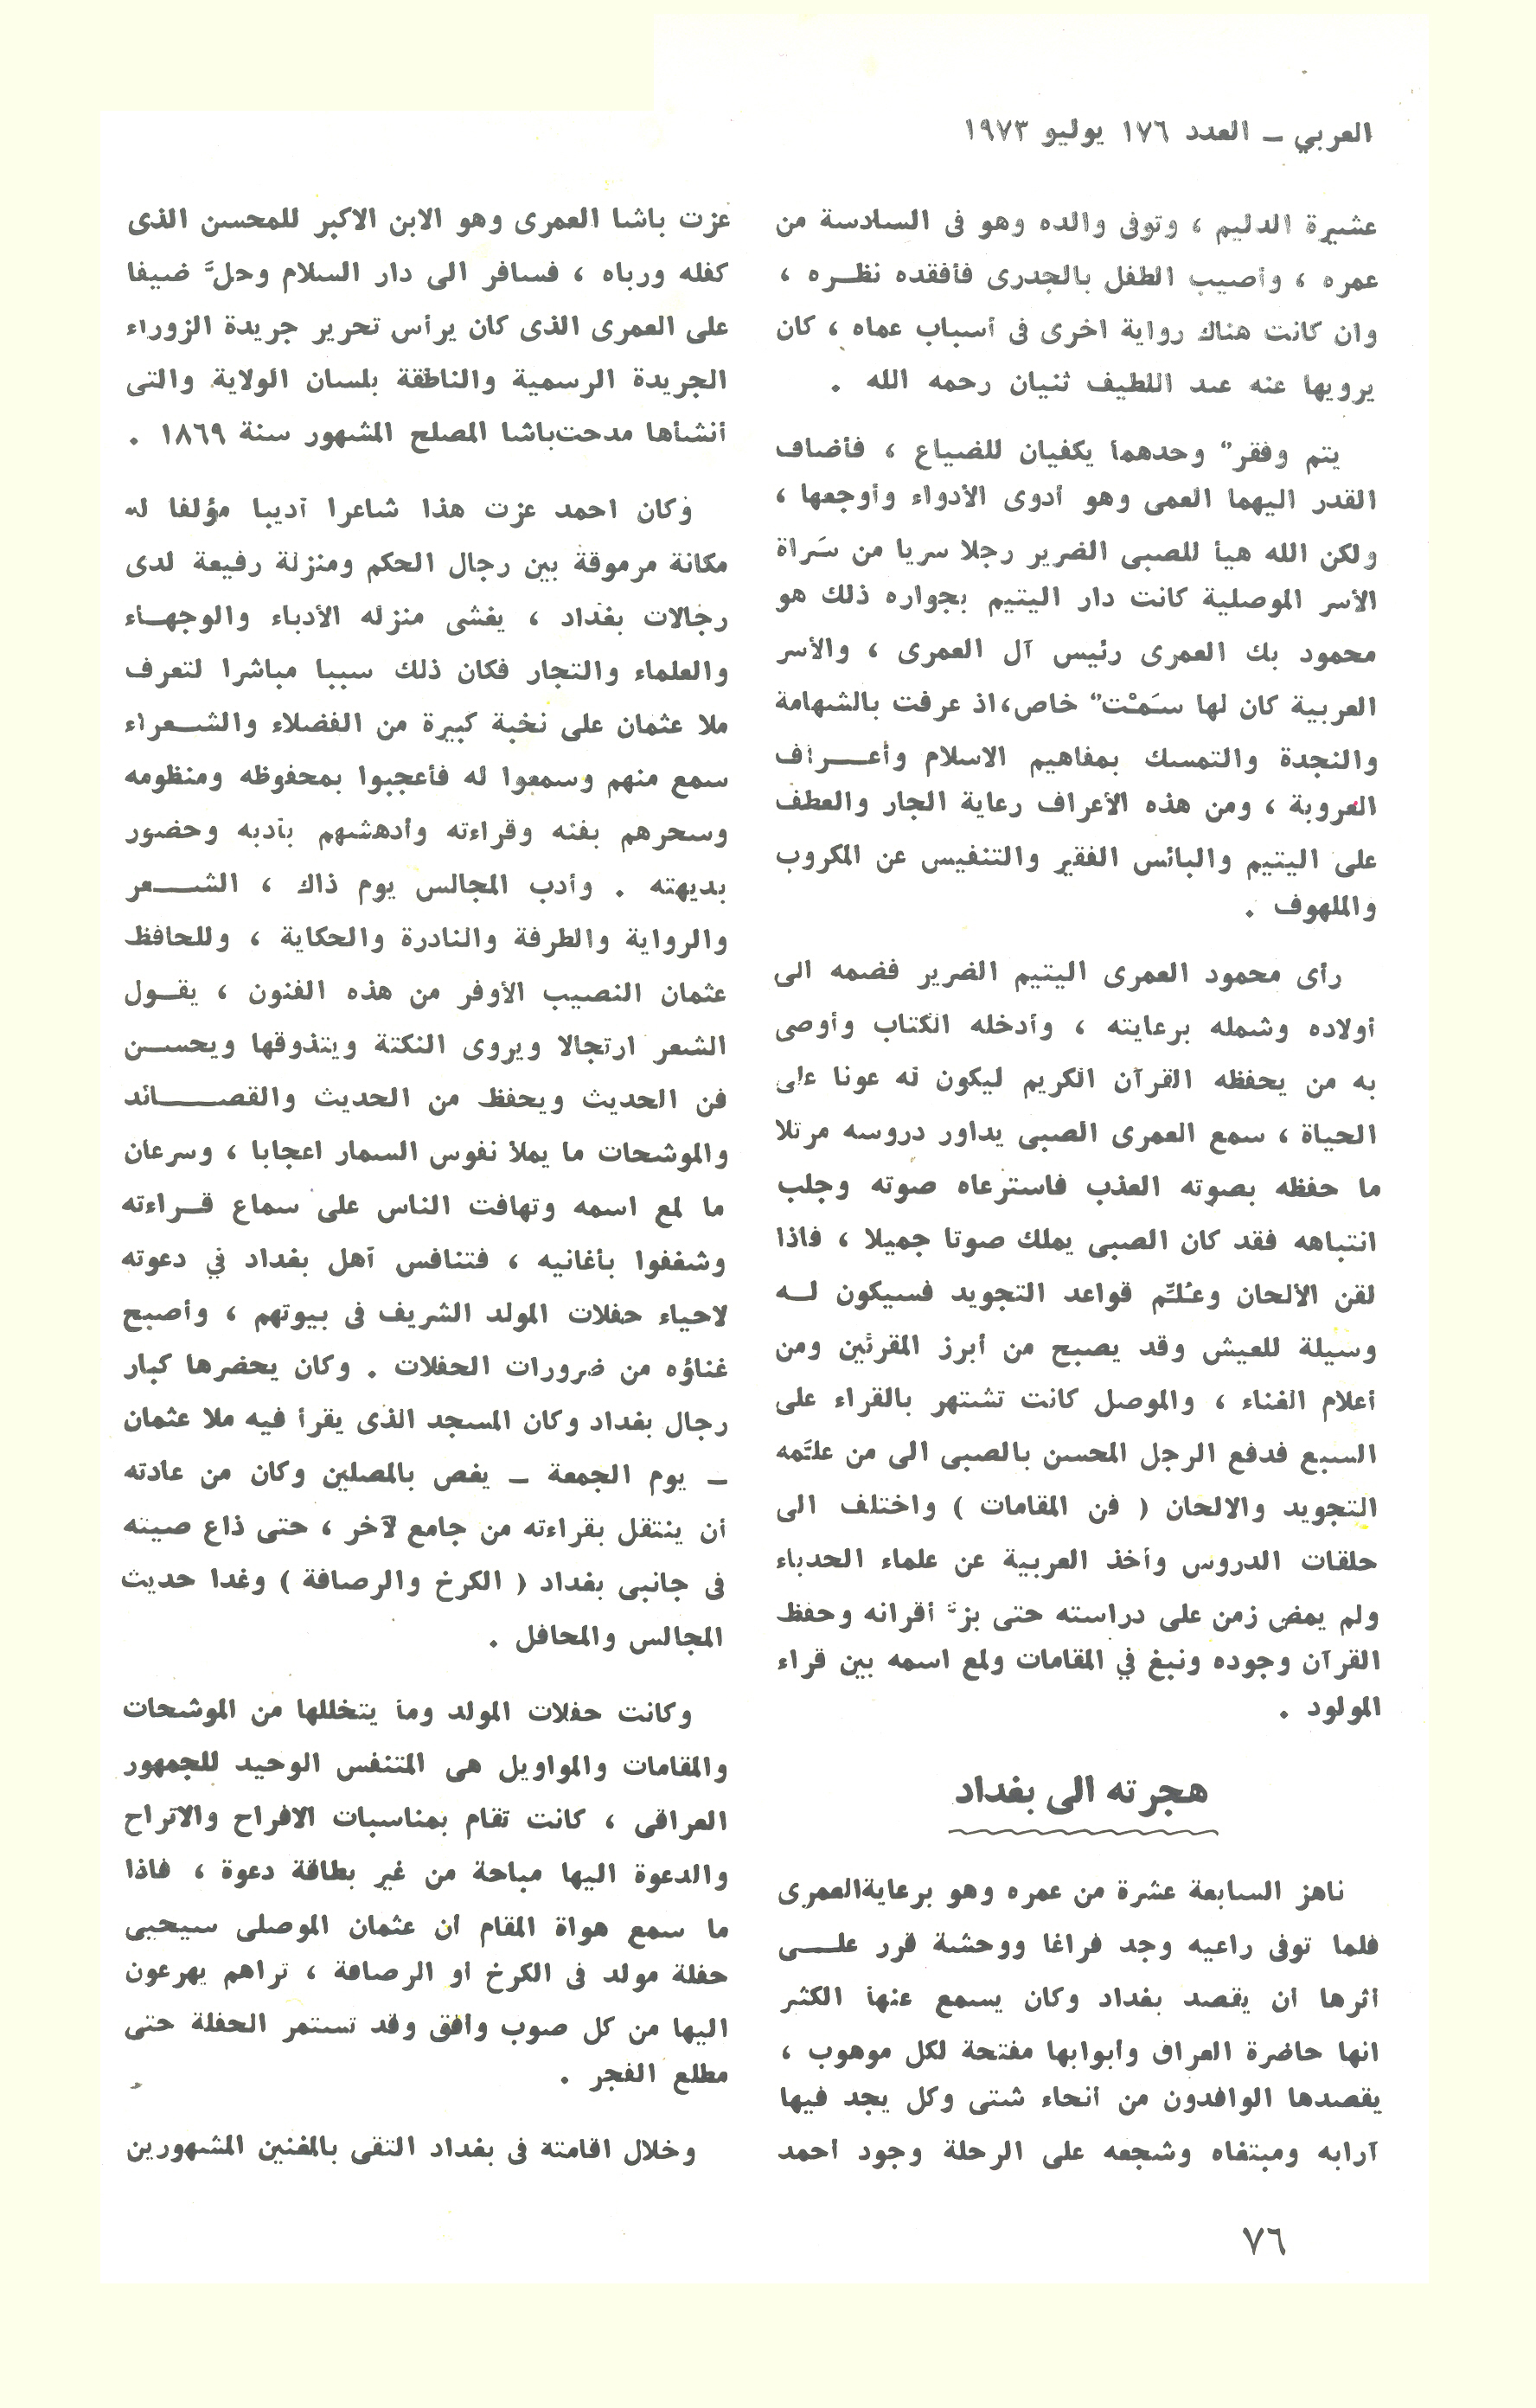 العربي – العدد ١٧٦ يوليو ١٩٧٣
عشيرة الدليم ، وتوفى والده وهو فى السادسة من
عمره ، وأصيب الطفل بالجدرى فأفقده نظــره ،
وان كانت هناك رواية اخرى فى أسباب عماه ، كان
يرويها عنه عبد اللطيف ثنيان رحمه الله .
يتم وفقرٌ وحدهما يكفيان للضياع ، فأضاف
القدر اليهما العمى وهو أدوى الأدواء وأوجعها ،
ولكن الله هيأ للصبى الضرير رجلا سريا من سَراة
الأسر الموصلية كانت دار اليتيم بجواره ذلك هو
محمود بك العمرى رئيس آل العمرى ، والأسر
العربية كان لها سَمْتٌ خاص، اذ عرفت بالشهامة
والنجدة والتمسك بمفاهيم الاسلام وأعـــراف
العروبة ، ومن هذه الأعراف رعاية الجار والعطف
على اليتيم والبائس الفقير والتنفيس عن المكروب
والملهوف .
رأى محمود العمرى اليتيم الضرير فضمه الى
أولاده وشمله برعايته ، وأدخله الكتاب وأوصى
به من يحفظه القرآن الكريم ليكون له عونا على
الحياة ، سمع العمرى الصبى يداور دروسه مرتلا
ما حفظه بصوته العذب فاسترعاه صوته وجلب
انتباهه فقد كان الصبى يملك صوتا جميلا ، فاذا
لقن الألحان وعُلِّم قواعد التجويد فسيكون لــه
وسيلة للعيش وقد يصبح من أبرز المقرئين ومن
أعلام الغناء ، والموصل كانت تشتهر بالقراء على
السبع فدفع الرجل المحسن بالصبى الى من علَّمه
التجويد والالحان ( فن المقامات ) واختلف الى
حلقات الدروس وأخذ العربية عن علماء الحدباء
ولم يمض زمن على دراسته حتى بزَّ أقرانه وحفظ
القرآن وجوده ونبغ في المقامات ولمع اسمه بين قراء
المولود .
هجرته الى بغداد
ناهز السابعة عشرة من عمره وهو برعاية العمرى
فلما توفى راعيه وجد فراغا ووحشة قرر علـــى
أثرها أن يقصد بغداد وكان يسمع عنها الكثير
انها حاضرة العراق وأبوابها مفتحة لكل موهوب ،
يقصدها الوافدون من أنحاء شتى وكل يجد فيها
آرابه ومبتغاه وشجعه على الرحلة وجود أحمد
عزت باشا العمرى وهو الابن الاكبر للمحسن الذى
كفله ورباه ، فسافر الى دار السلام وحلَّ ضيفا
على العمرى الذى كان يرأس تحرير جريدة الزوراء
الجريدة الرسمية والناطقة بلسان الولاية والتى
أنشأها مدحت باشا المصلح المشهور سنة ١٨٦٩ .
وكان احمد عزت هذا شاعرا أديبا مؤلفا له
مكانة مرموقة بين رجال الحكم ومنزلة رفيعة لدى
رجالات بغداد ، يغشى منزله الأدباء والوجهــاء
والعلماء والتجار فكان ذلك سببا مباشرا لتعرف
ملا عثمان على نخبة كبيرة من الفضلاء والشــعراء
سمع منهم وسمعوا له فأعجبوا بمحفوظه ومنظومه
وسحرهم بفنه وقراءته وأدهشهم بأدبه وحضور
بديهته . وأدب المجالس يوم ذاك ، الشــــعر
والرواية والطرفة والنادرة والحكاية ، وللحافظ
عثمان النصيب الأوفر من هذه الفنون ، يقــول
الشعر ارتجالا ويروى النكتة ويتذوقها ويحســن
فن الحديث ويحفظ من الحديث والقصـــــائد
والموشحات ما يملأ نفوس السمار اعجابا ، وسرعان
ما لمع اسمه وتهافت الناس على سماع قــراءته
وشغفوا بأغانيه ، فتنافس أهل بغداد في دعوته
لاحياء حفلات المولد الشريف فى بيوتهم ، وأصبح
غناؤه من ضرورات الحفلات . وكان يحضرها كبار
رجال بغداد وكان المسجد الذى يقرأ فيه ملا عثمان
– يوم الجمعة – يغص بالمصلين وكان من عادته
أن ينتقل بقراءته من جامع لآخر ، حتى ذاع صيته
فى جانبى بغداد ( الكرخ والرصافة ) وغدا حديث
المجالس والمحافل .
وكانت حفلات المولد وما يتخللها من الموشحات
والمقامات والمواويل هى المتنفس الوحيد للجمهور
العراقى ، كانت تقام بمناسبات الافراح والاتراح
والدعوة اليها مباحة من غير بطاقة دعوة ، فاذا
ما سمع هواة المقام أن عثمان الموصلى سيحيى
حفلة مولد فى الكرخ أو الرصافة ، تراهم يهرعون
اليها من كل صوب وأفق وقد تستمر الحفلة حتى
مطلع الفجر .
وخلال اقامته فى بغداد التقى بالمغنين المشهورين
٧٦